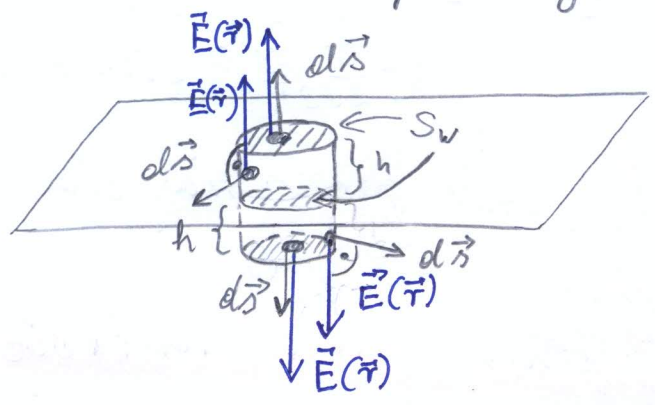 E⃗(r⃗)
ds⃗
E⃗(r⃗)
S_w
ds⃗
h
h
ds⃗
ds⃗
E⃗(r⃗)
E⃗(r⃗)